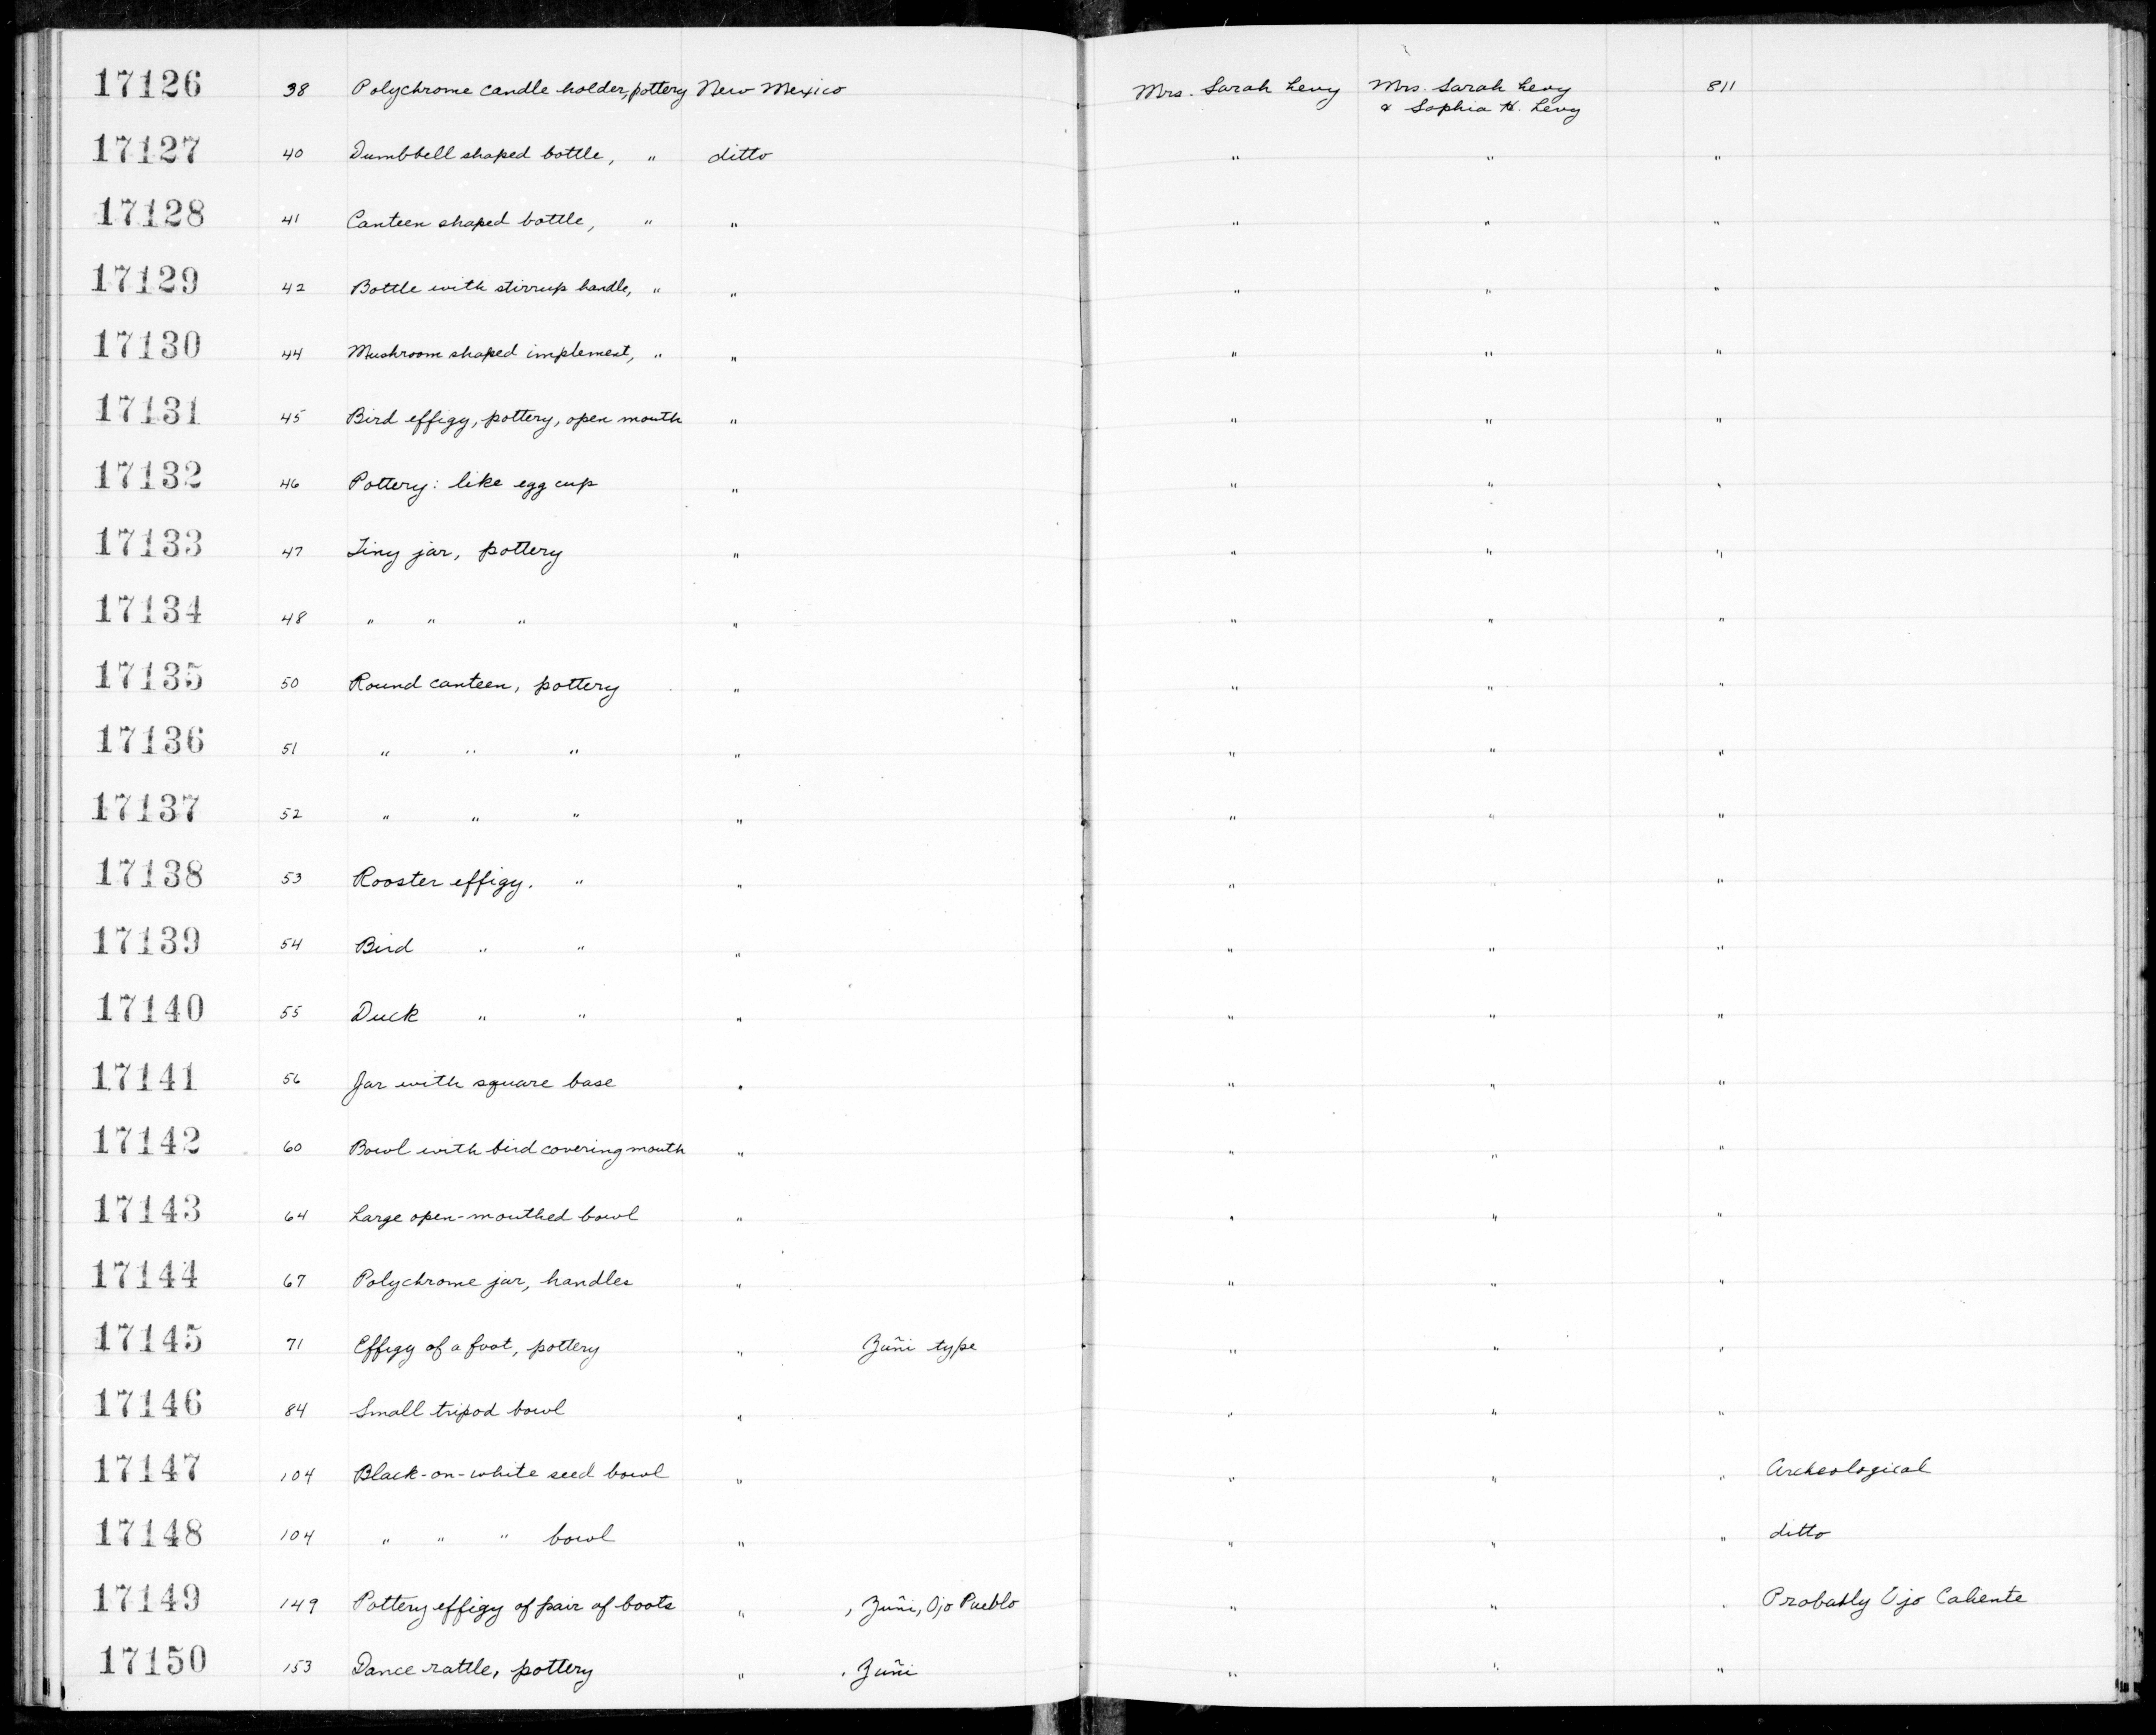 17126 38 Polychrome candle holder, pottery New Mexico Mrs. Sarah Levy Mrs. Sarah Levy 811
& Sophia H. Levy
17127 40 Dumbbell shaped bottle, " ditto " " "
17128 41 Canteen shaped bottle, " " " " "
17129 42 Bottle with stirrup handle, " " " " "
17130 44 Mushroom shaped implement, " " " " "
17131 45 Bird effigy, pottery, open mouth " " " "
17132 46 Pottery: like egg cup " " " "
17133 47 Tiny jar, pottery " " " "
17134 48 " " " " " " "
17135 50 Round canteen, pottery " " " "
17136 51 " " " " " " "
17137 52 " " " " " " "
17138 53 Rooster effigy. " " " " "
17139 54 Bird " " " " " "
17140 55 Duck " " " " " "
17141 56 Jar with square base " " " "
17142 60 Bowl with bird covering mouth " " " "
17143 64 Large open-mouthed bowl " " " "
17144 67 Polychrome jar, handles " " " "
17145 71 Effigy of a foot, pottery " Zuñi type " " "
17146 84 Small tripod bowl " " " "
17147 104 Black-on-white seed bowl " " " " Archeological
17148 104 " " " bowl " " " " ditto
17149 149 Pottery effigy of pair of boots " , Zuñi, Ojo Pueblo " " " Probably Ojo Caliente
17150 153 Dance rattle, pottery " , Zuñi " " "